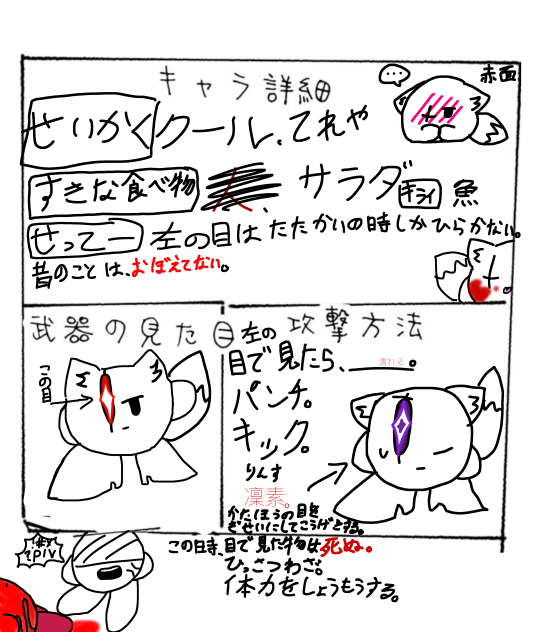 キャラ詳細
…
赤面
せいかく クール、てれや
すきな食べ物 人、サラダ キライ 魚
せってー 左の目はたたかいの時しかひらかない。
昔のことは、おぼえてない。
武器の見た目
この目
左の攻撃方法
目で見たら、潰れる。
パンチ。
キック。
りんす
凜素。
かたほうの目を
ぎせいにしてこうげきする。
この日寺、目で見た物は死ぬ。
ひっさつわざ。
体力をしょうもうする。